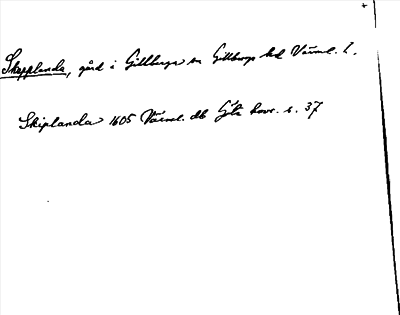 Skepplanda, gård i Gillberga sn Gillbergs hd Värml. l.
Skiplanda 1605 Värml. db Göta hovr. s. 37